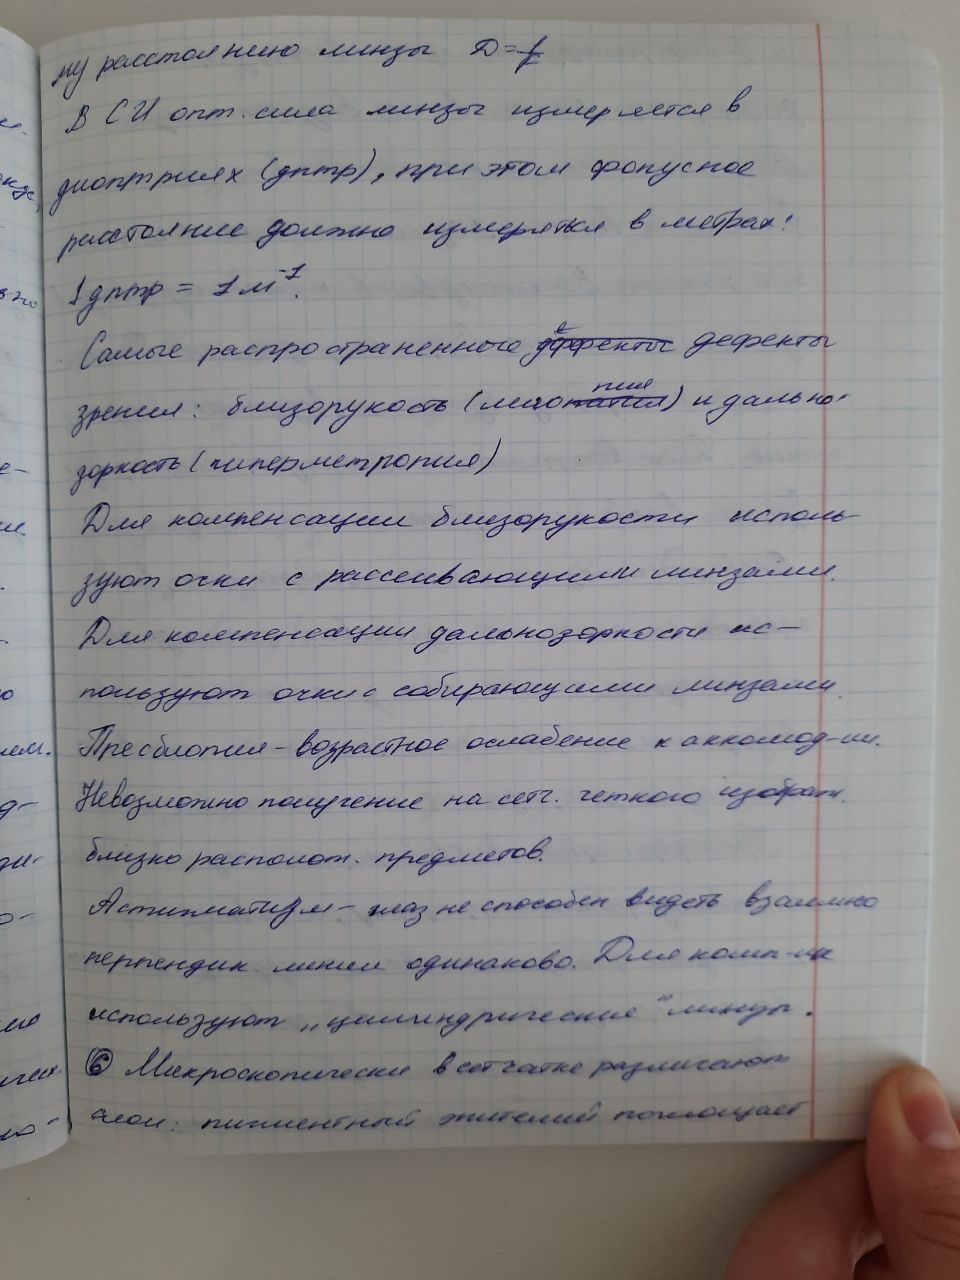 му расстоянию линзы D=1/f
В СИ опт. сила линзы измеряется в
диоптриях (дптр), при этом фокусное
расстояние должно измеряться в метрах:
1 дптр = 1 м⁻¹.
Самые распространенные дефекты
зрения: близорукость (миопия) и дально-
зоркость (гиперметропия)
Для компенсации близорукости исполь-
зуют очки с рассеивающими линзами.
Для компенсации дальнозоркости ис-
пользуют очки с собирающими линзами.
Пресбиопия - возрастное ослабение к аккомод-ии.
Невозможно получение на сетч. четкого изображ.
близко располож. предметов.
Астигматизм - глаз не способен видеть взаимно
перпендик. линии одинаково. Для комп-ии
используют „цилиндрические" линзы.
⑥ Микроскопически в сетчатке различают
слои: пигментный эпителий поглощает